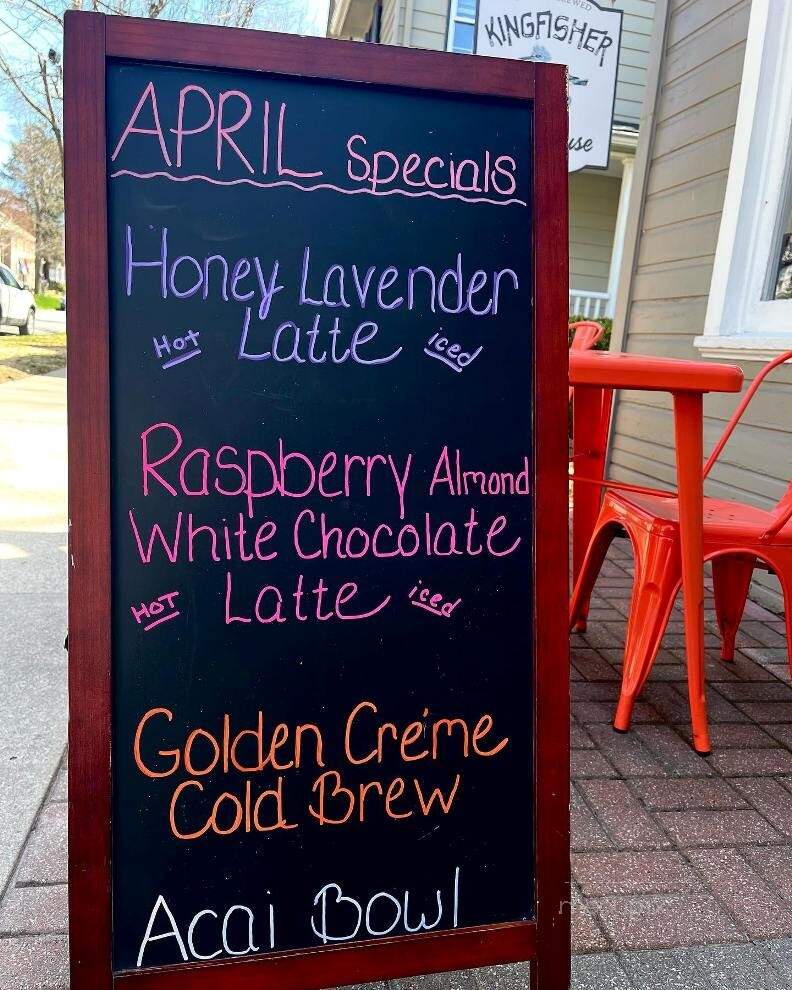 BREWED
KINGFISHER
use
APRIL Specials
Honey Lavender
Hot Latte iced
Raspberry Almond
White Chocolate
HOT Latte iced
Golden Créme
Cold Brew
Acai Bowl